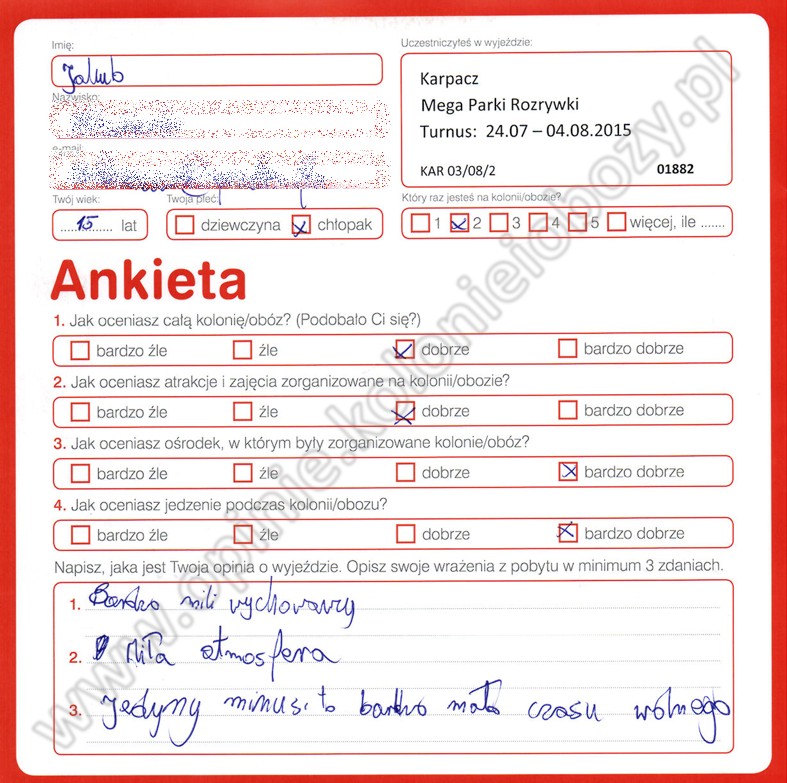 Imię:
Jakub
Uczestniczyłeś w wyjeździe:
Karpacz
Mega Parki Rozrywki
Turnus: 24.07 – 04.08.2015
KAR 03/08/2 01882
Nazwisko:
e-mail:
Twój wiek:
15 lat
Twoja płeć:
dziewczyna chłopak
Który raz jesteś na kolonii/obozie?
1 2 3 4 5 więcej, ile .......
Ankieta
1. Jak oceniasz całą kolonię/obóz? (Podobało Ci się?)
bardzo źle źle dobrze bardzo dobrze
2. Jak oceniasz atrakcje i zajęcia zorganizowane na kolonii/obozie?
bardzo źle źle dobrze bardzo dobrze
3. Jak oceniasz ośrodek, w którym były zorganizowane kolonie/obóz?
bardzo źle źle dobrze bardzo dobrze
4. Jak oceniasz jedzenie podczas kolonii/obozu?
bardzo źle źle dobrze bardzo dobrze
Napisz, jaka jest Twoja opinia o wyjeździe. Opisz swoje wrażenia z pobytu w minimum 3 zdaniach.
1. Bardzo mili wychowawcy
2. Miła atmosfera
3. Jedyny minus: to bardzo mało czasu wolnego
www.opinie.kolonieiobozy.pl